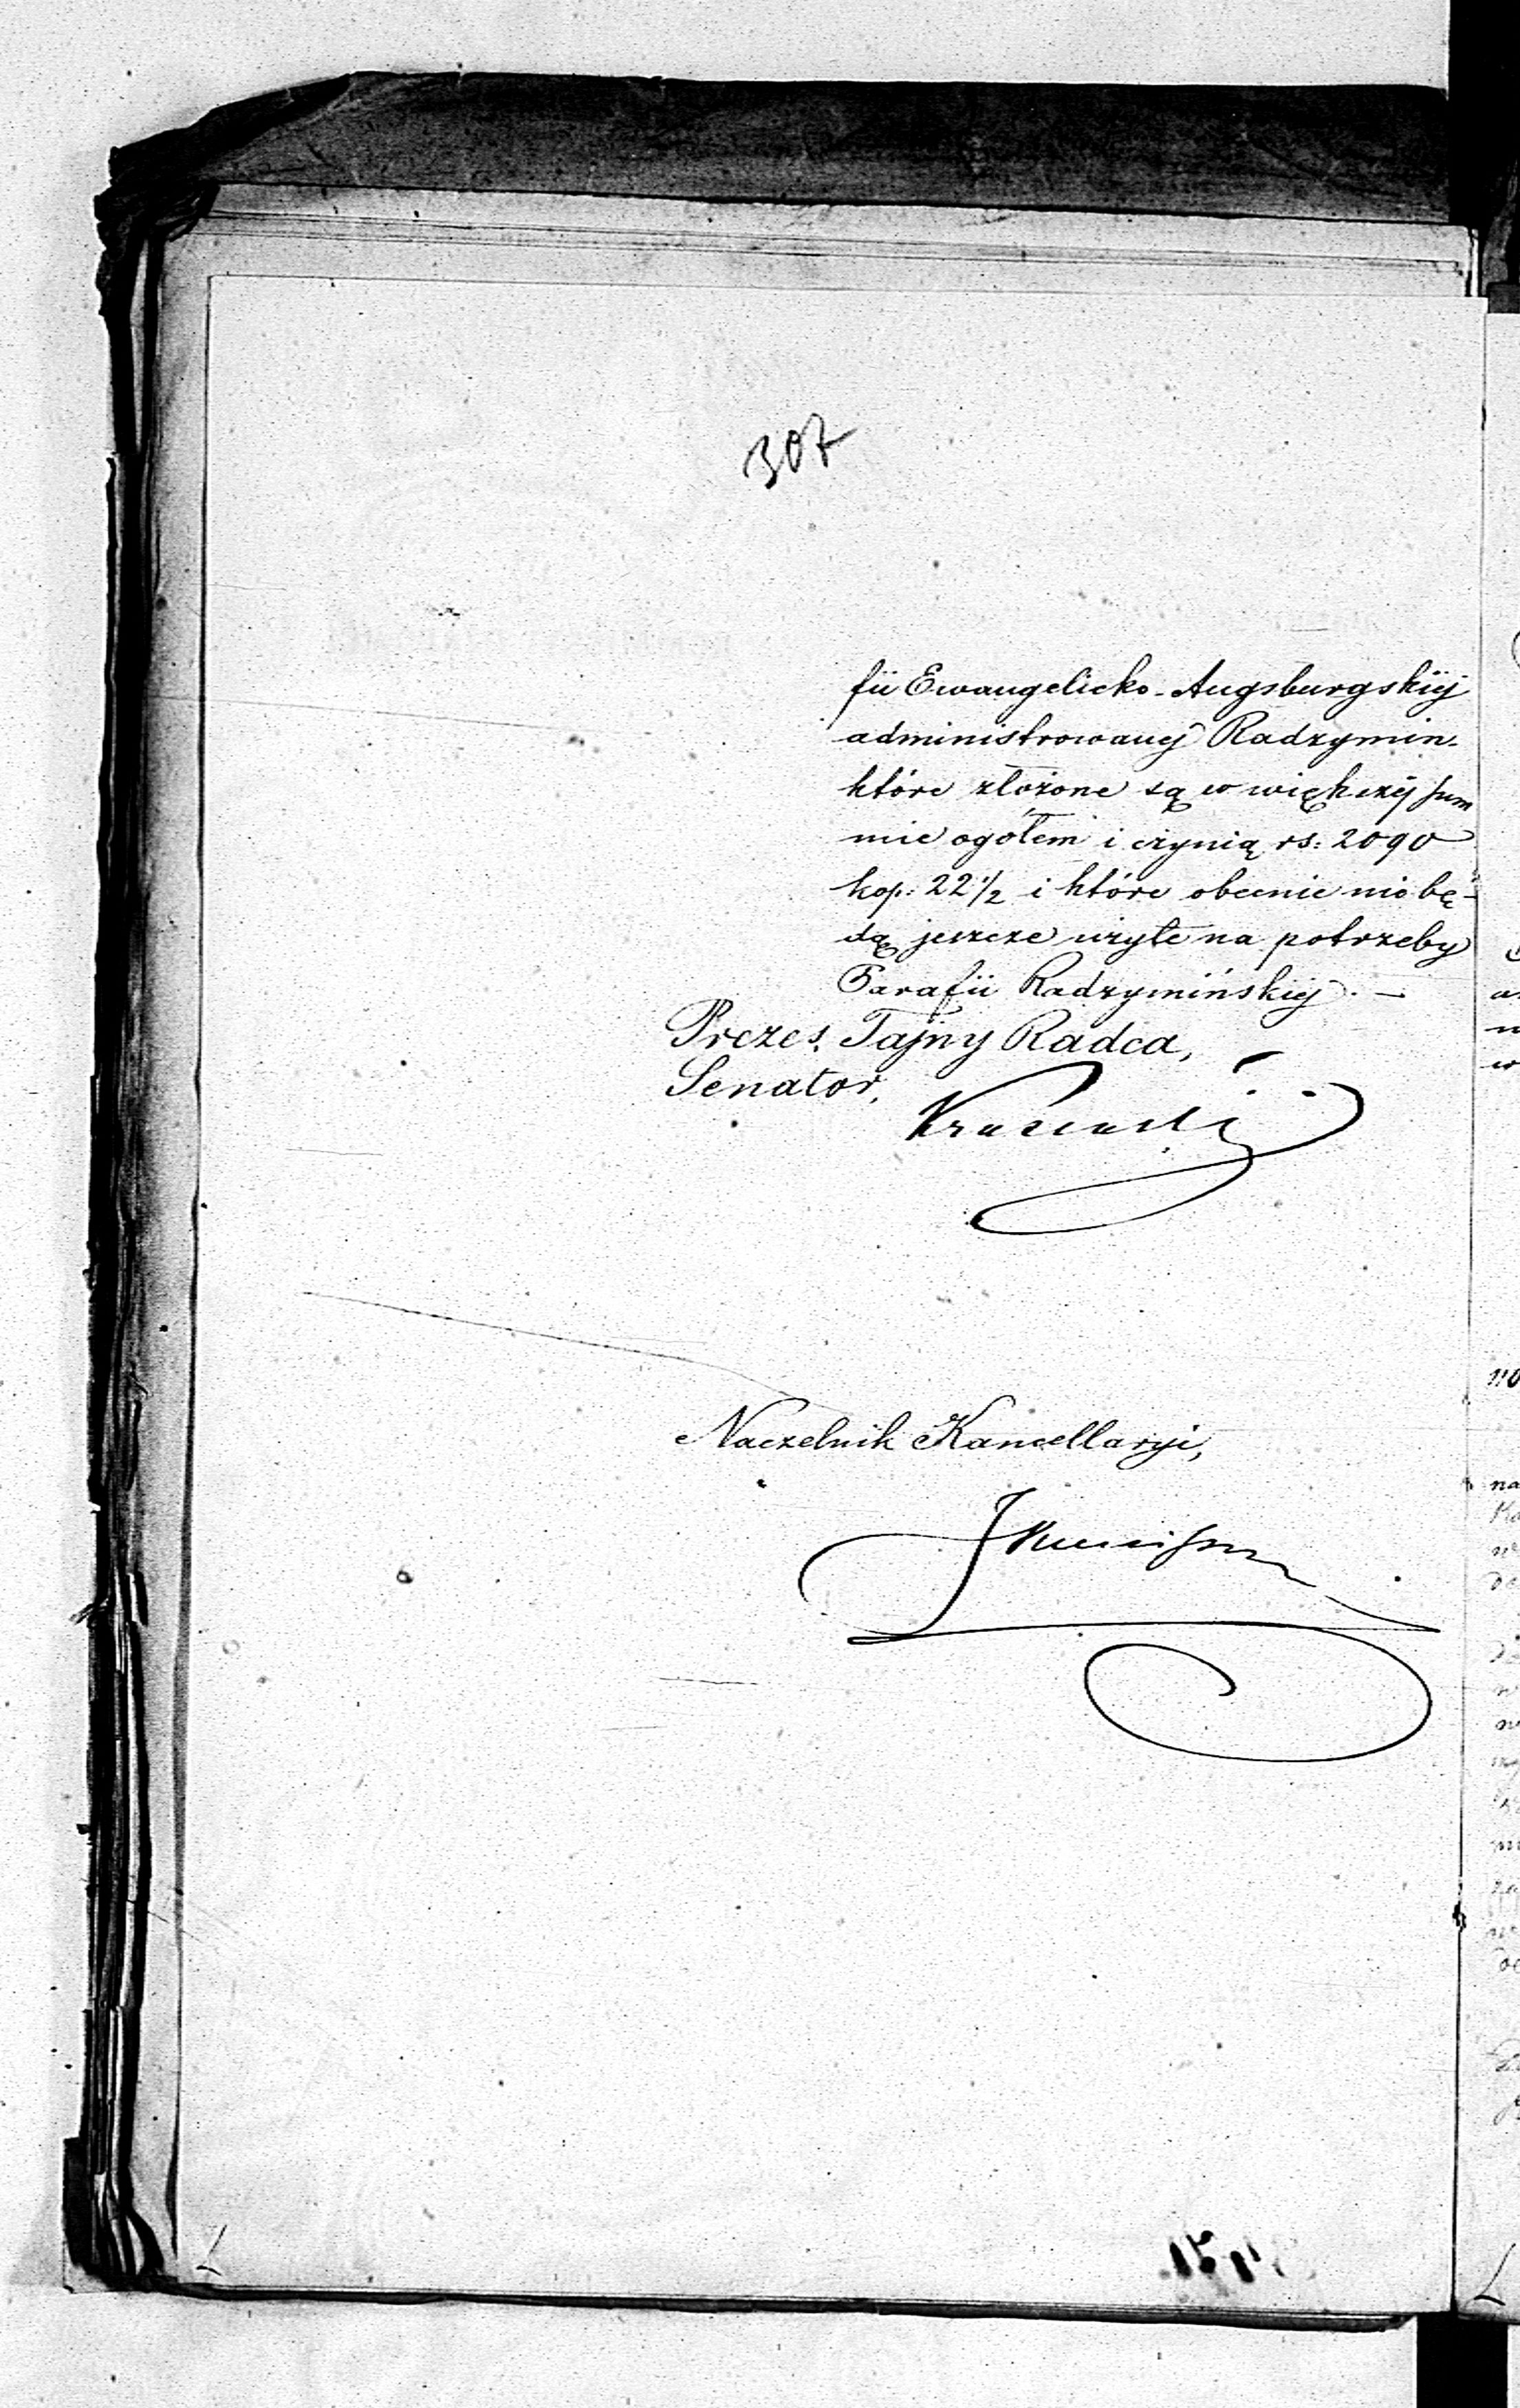 307
fii Ewangelicko-Augsburgskiéj
administrowanéj Radzymin-
które złożone są w większéj sum
mie ogółem i czynią rs: 2090
kop: 22 1/2 i które obecnie nie bę-
dą jeszcze użyte na potrzeby
Parafii Radzymińskiéj. —
Prezes, Tajny Radca,
Senator,
Naczelnik Kancellaryi,